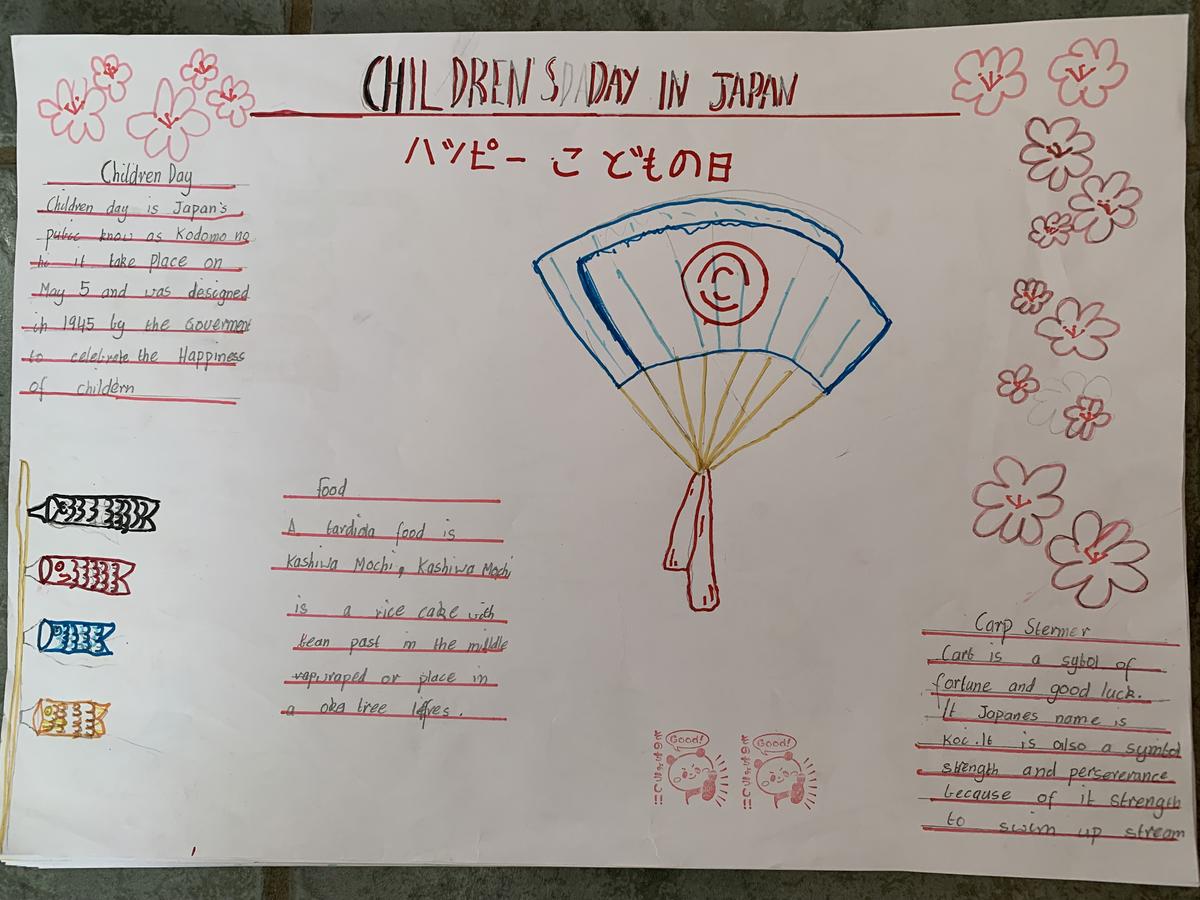 CHILDREN'S DADAY IN JAPAN
ハッピー こどもの日
Children Day
Children day is Japan's
pubic know as Kodomo no
hi it take place on
May 5 and was designed
in 1945 by the Goverment
to celebrate the Happiness
of childern
food
A tardiola food is
Kashiwa Mochi, Kashiwa Mochi
is a rice cake with
bean past in the middle
wraped or place in
a oka tree leaves.
Good!
Good!
Carp Stermer
Carb is a sybol of
fortune and good luck.
It Japanes name is
Koc. It is also a symbol
strength and perserverance
because of it strength
to swim up stream